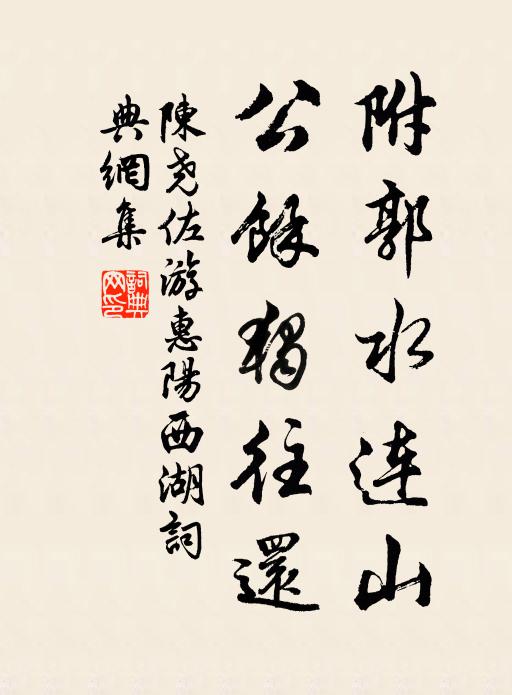 附郭水连山
公餘獨往還
陳尧佐游惠陽西湖詞
典網集
詞典
网印